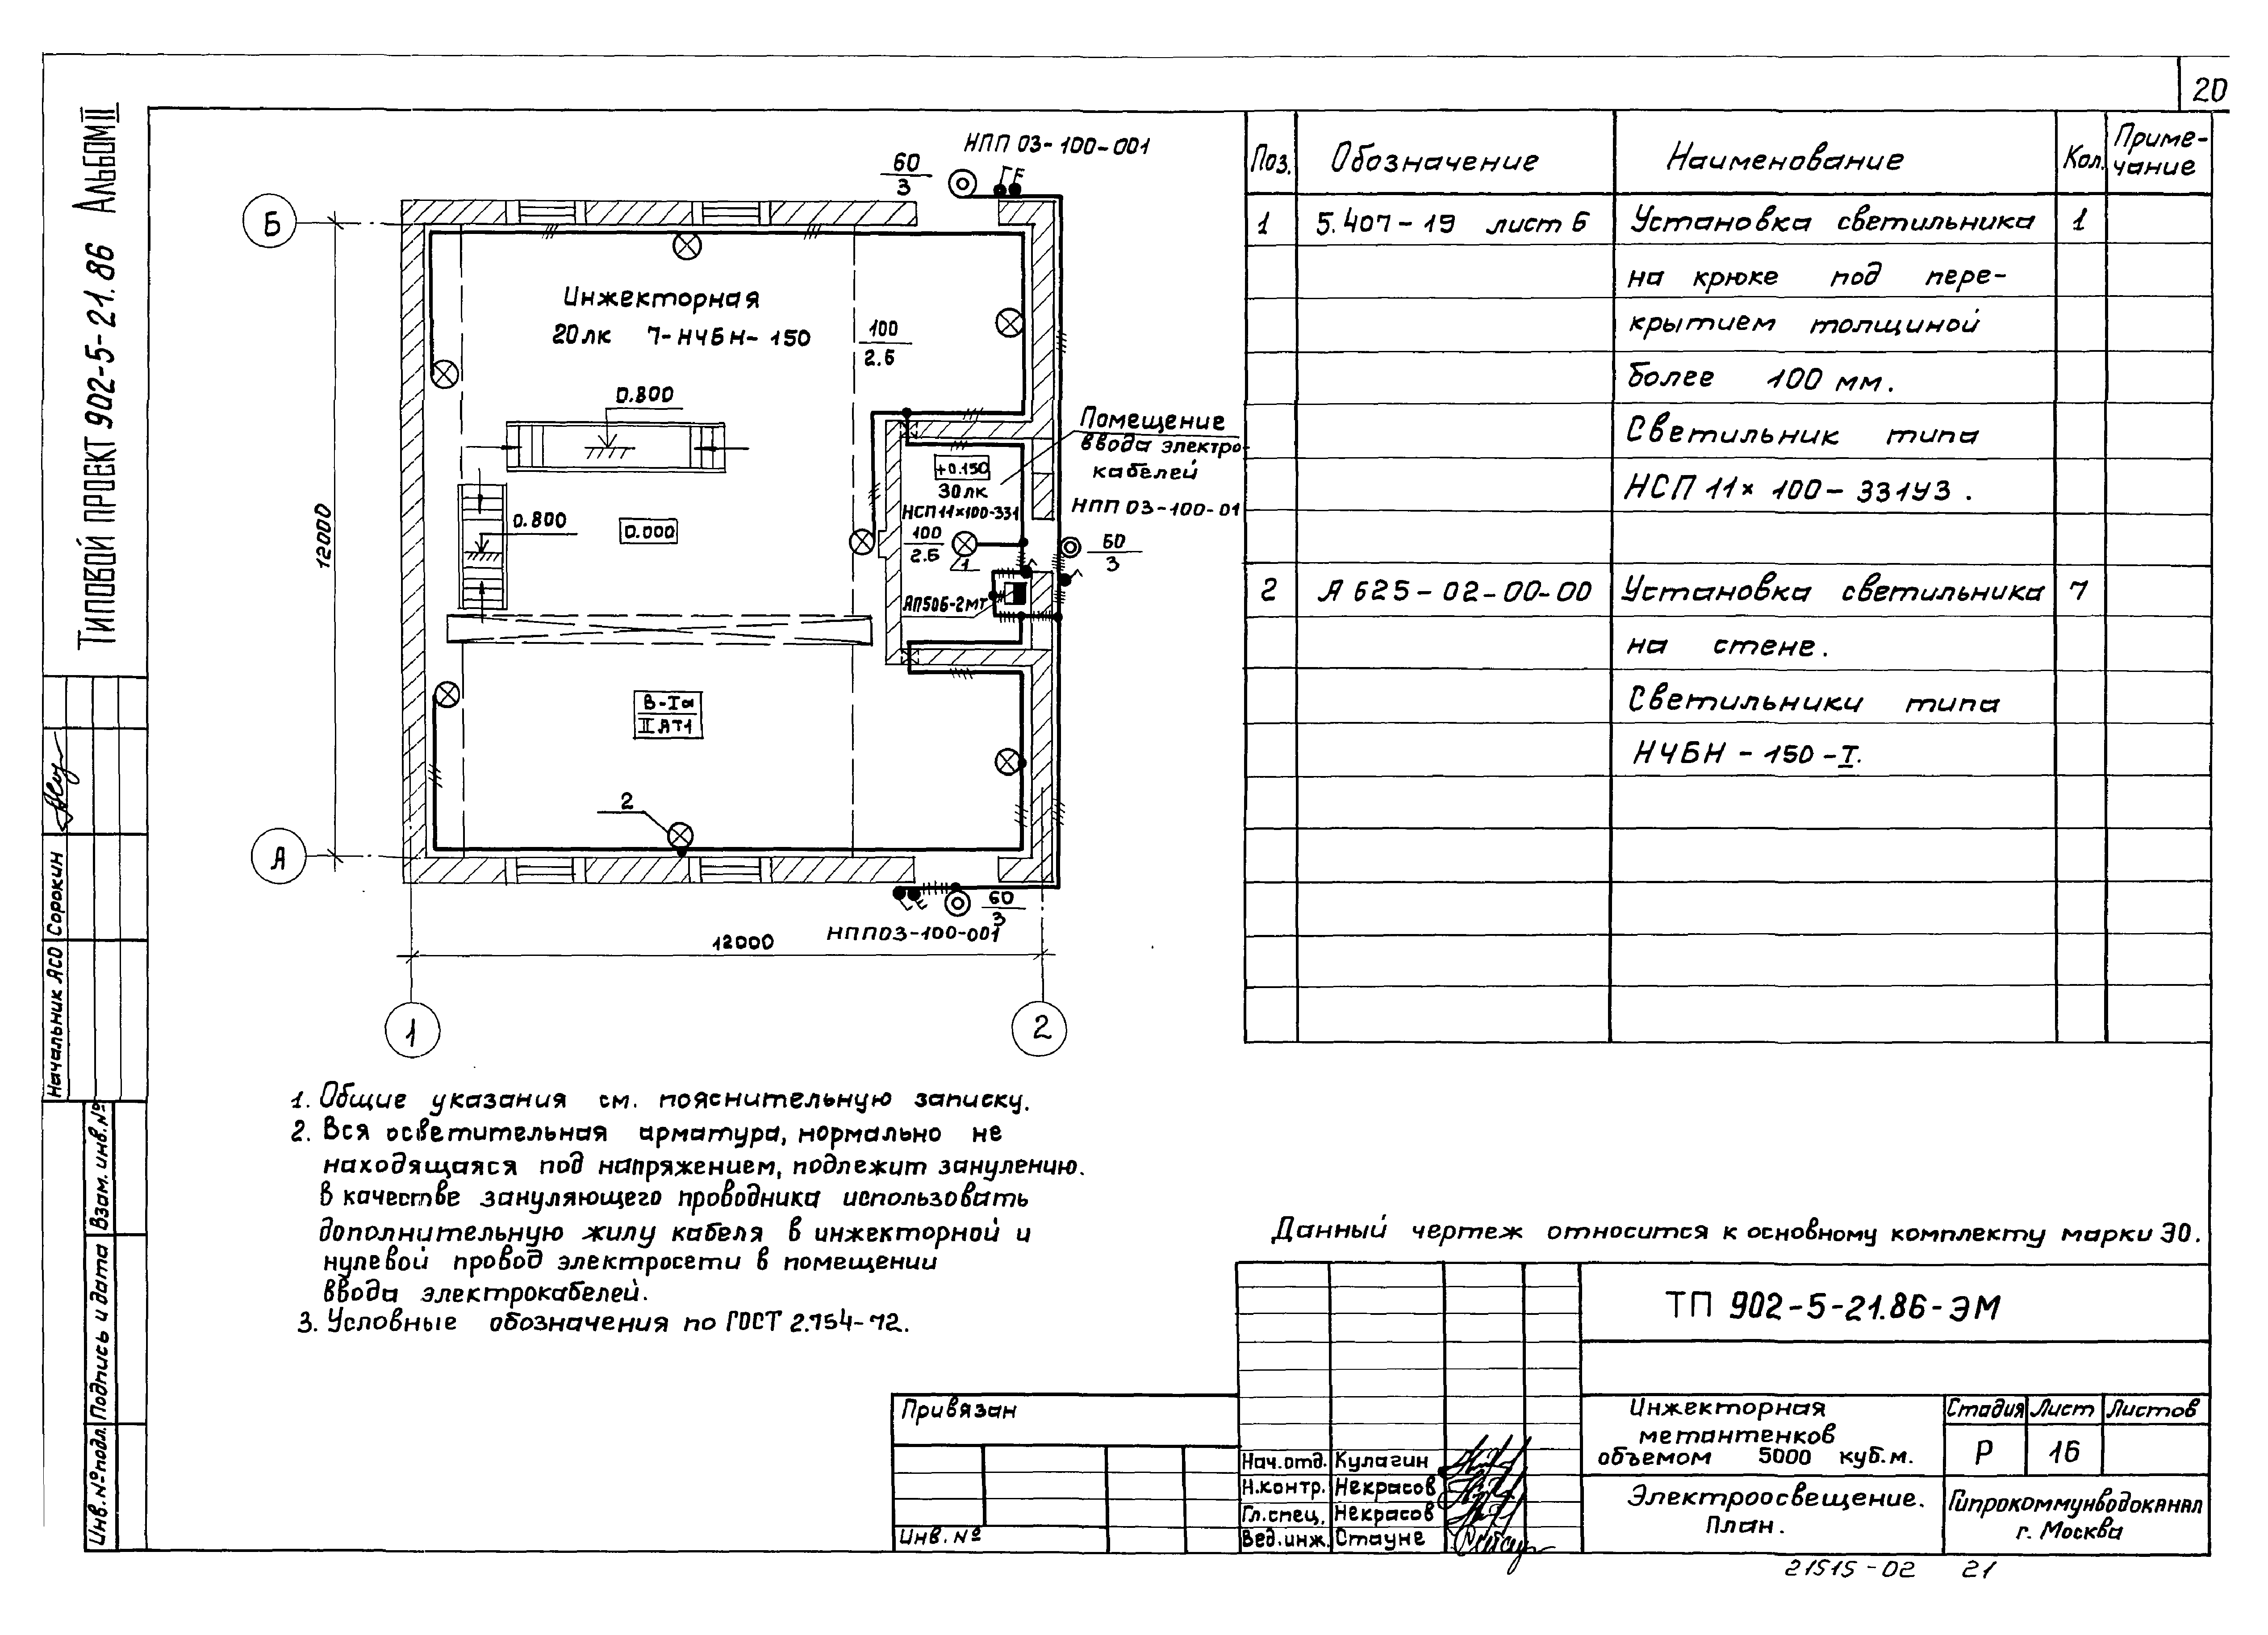 20
Типовой проект 902-5-21.86 Альбом II
НПП 03-100-001
60
3
Б
Инжекторная
20лк 7-НЧБН-150
100
2.5
0.800
Помещение
ввода электро-
кабелей
+0.150
30лк
НСП11×100-331
НПП 03-100-01
0.800
0.000
100
2.5
1
60
3
АП50Б-2МТ
12000
В-Iа
II АТ1
2
А
60
3
НПП03-100-001
12000
1
2
Поз. Обозначение Наименование Кол. Приме-
чание
1 5.407-19 лист 6 Установка светильника 1
на крюке под пере-
крытием толщиной
более 100 мм.
Светильник типа
НСП 11× 100-331У3.
2 А 625-02-00-00 Установка светильника 7
на стене.
Светильники типа
НЧБН-150-I.
1. Общие указания см. пояснительную записку.
2. Вся осветительная арматура, нормально не
находящаяся под напряжением, подлежит занулению.
В качестве зануляющего проводника использовать
дополнительную жилу кабеля в инжекторной и
нулевой провод электросети в помещении
ввода электрокабелей.
3. Условные обозначения по ГОСТ 2.754-72.
Данный чертеж относится к основному комплекту марки ЭО.
ТП 902-5-21.86-ЭМ
Инжекторная
метантенков
объемом 5000 куб.м.
Стадия Лист Листов
Р 16
Электроосвещение.
План.
Гипрокоммунводоканал
г. Москва
Привязан
Инв. №
Нач.отд. Кулагин
Н.контр. Некрасов
Гл.спец. Некрасов
Вед.инж. Стауне
21515-02 21
Начальник АСО Сорокин
Взам. инв.№
Подпись и дата
Инв.№подл.